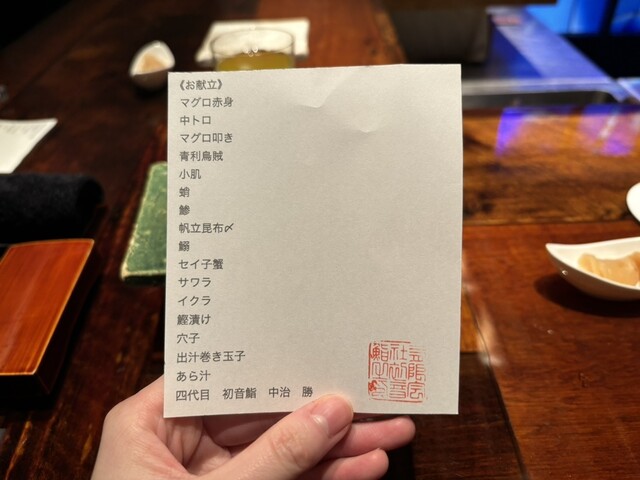 《お献立》
マグロ赤身
中トロ
マグロ叩き
青利烏賊
小肌
蛸
鯵
帆立昆布〆
鰯
セイ子蟹
サワラ
イクラ
鰹漬け
穴子
出汁巻き玉子
あら汁
四代目　初音鮨　中治　勝